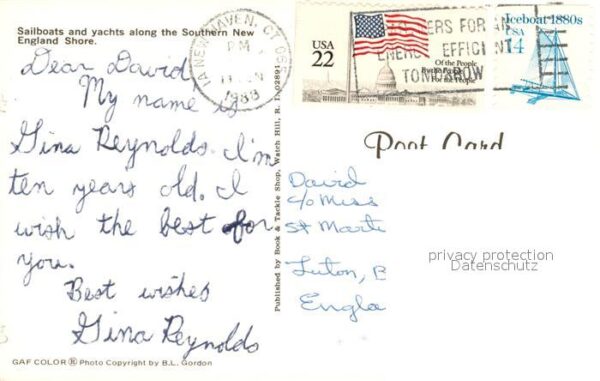 Sailboats and yachts along the Southern New
England Shore.
Dear David
My name is
Gina Reynolds. I'm
ten years old. I
wish the best for
you.
Best wishes
Gina Reynolds
GAF COLOR® Photo Copyright by B.L. Gordon
Published by Book & Tackle Shop, Watch Hill, R. I. 02891
NEW HAVEN, CT 065
PM
1988
USA
22
Of the People
By the People
For the People
FOR AN
ENERGY EFFICIENT
TOMORROW
Iceboat 1880s
USA
14
Post Card
David
c/o Miss
St Marti
Luton, B
Engla
privacy protection
Datenschutz